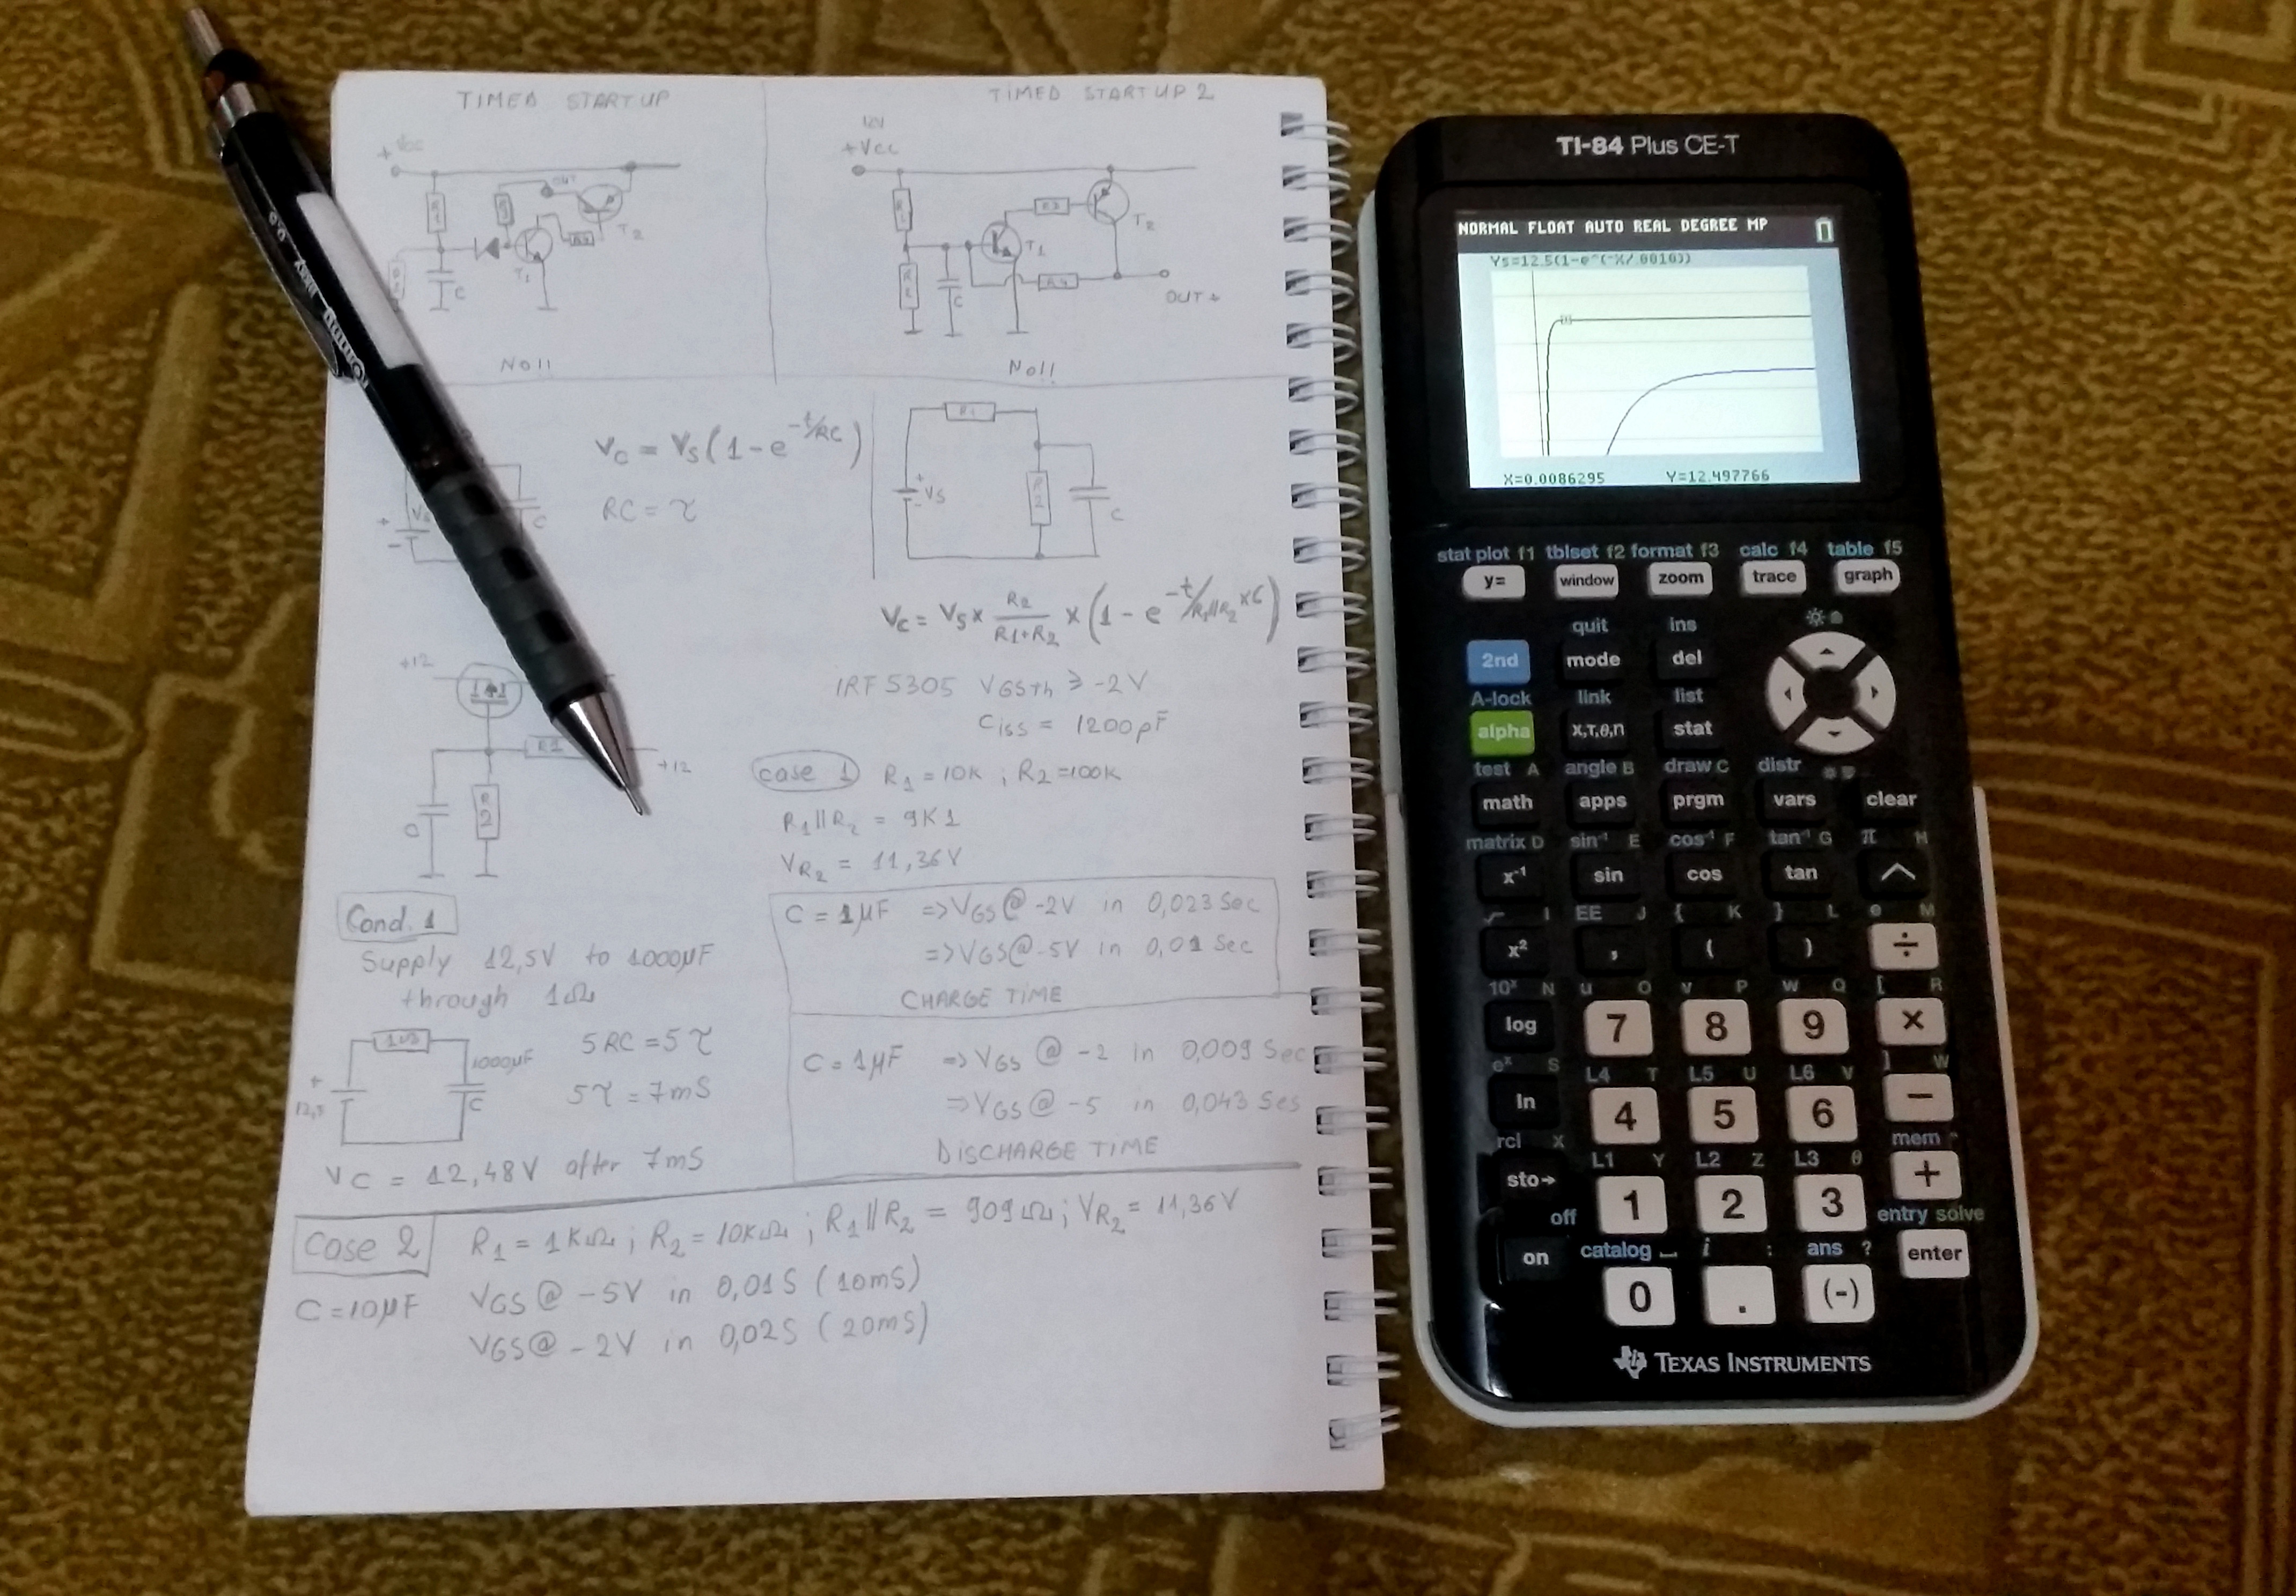 TIMED STARTUP
+ Vcc
R1
R2
C
R3
T1
R4
OUT
T2
No!!
TIMED STARTUP 2
12V
+Vcc
R1
R2
C
T1
R3
T2
R4
OUT +
No!!
Vc = Vs(1-e^-t/RC)
RC = τ
+
-
Vs
C
R1
+
-
Vs
R2
C
Vc = Vs × R2/(R1+R2) × (1 - e^-t/R1||R2×C)
+12
R1
+12
C
R2
IRF5305 VGSth ≥ -2V
Ciss = 1200pF
case 1 R1 = 10K ; R2 = 100K
R1||R2 = 9K1
VR2 = 11,36V
C = 1μF => VGS@ -2V in 0,023 Sec
=> VGS@ -5V in 0,01 Sec
CHARGE TIME
C = 1μF => VGS @ -2 in 0,009 Sec
=> VGS @ -5 in 0,043 Ses
DISCHARGE TIME
Cond. 1
Supply 12,5V to 1000μF
through 1Ω
1Ω
1000μF
C
+
12,5
5RC = 5τ
5τ = 7mS
VC = 12,48V after 7mS
Case 2 R1 = 1KΩ ; R2 = 10KΩ ; R1||R2 = 909Ω ; VR2 = 11,36V
C = 10μF VGS @ -5V in 0,01S (10mS)
VGS@ -2V in 0,02S (20mS)
0.5
Rotring
TI-84 Plus CE-T
NORMAL FLOAT AUTO REAL DEGREE MP
Y5=12.5(1-e^(-X/.0010))
X=0.0086295 Y=12.497766
stat plot f1 tblset f2 format f3 calc f4 table f5
y= window zoom trace graph
quit ins
2nd mode del
A-lock link list
alpha X,T,θ,n stat
test A angle B draw C distr
math apps prgm vars clear
matrix D sin⁻¹ E cos⁻¹ F tan⁻¹ G π H
x⁻¹ sin cos tan ^
√ I EE J { K } L e M
x² , ( ) ÷
10ˣ N u O v P w Q [ R
log 7 8 9 ×
eˣ S L4 T L5 U L6 V ] W
ln 4 5 6 −
rcl X L1 Y L2 Z L3 θ mem "
sto→ 1 2 3 +
off catalog ⎵ i : ans ? entry solve
on 0 . (-) enter
TEXAS INSTRUMENTS